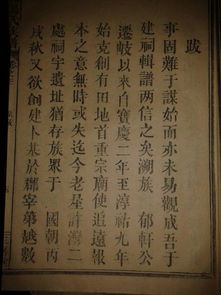 跋
事固難于謀始而亦未易觀成吾于
建祠輯譜兩信之矣溯族 郁軒公
遷岐以來自寶慶二年至淳祐九年
始克創有田地首重宗廟使追遠報
本之意無時或失迄今老屋許灣二
處祠宇遺址猶存族衆于 國朝丙
戌秋又欲創建卜基於郡宰第越數